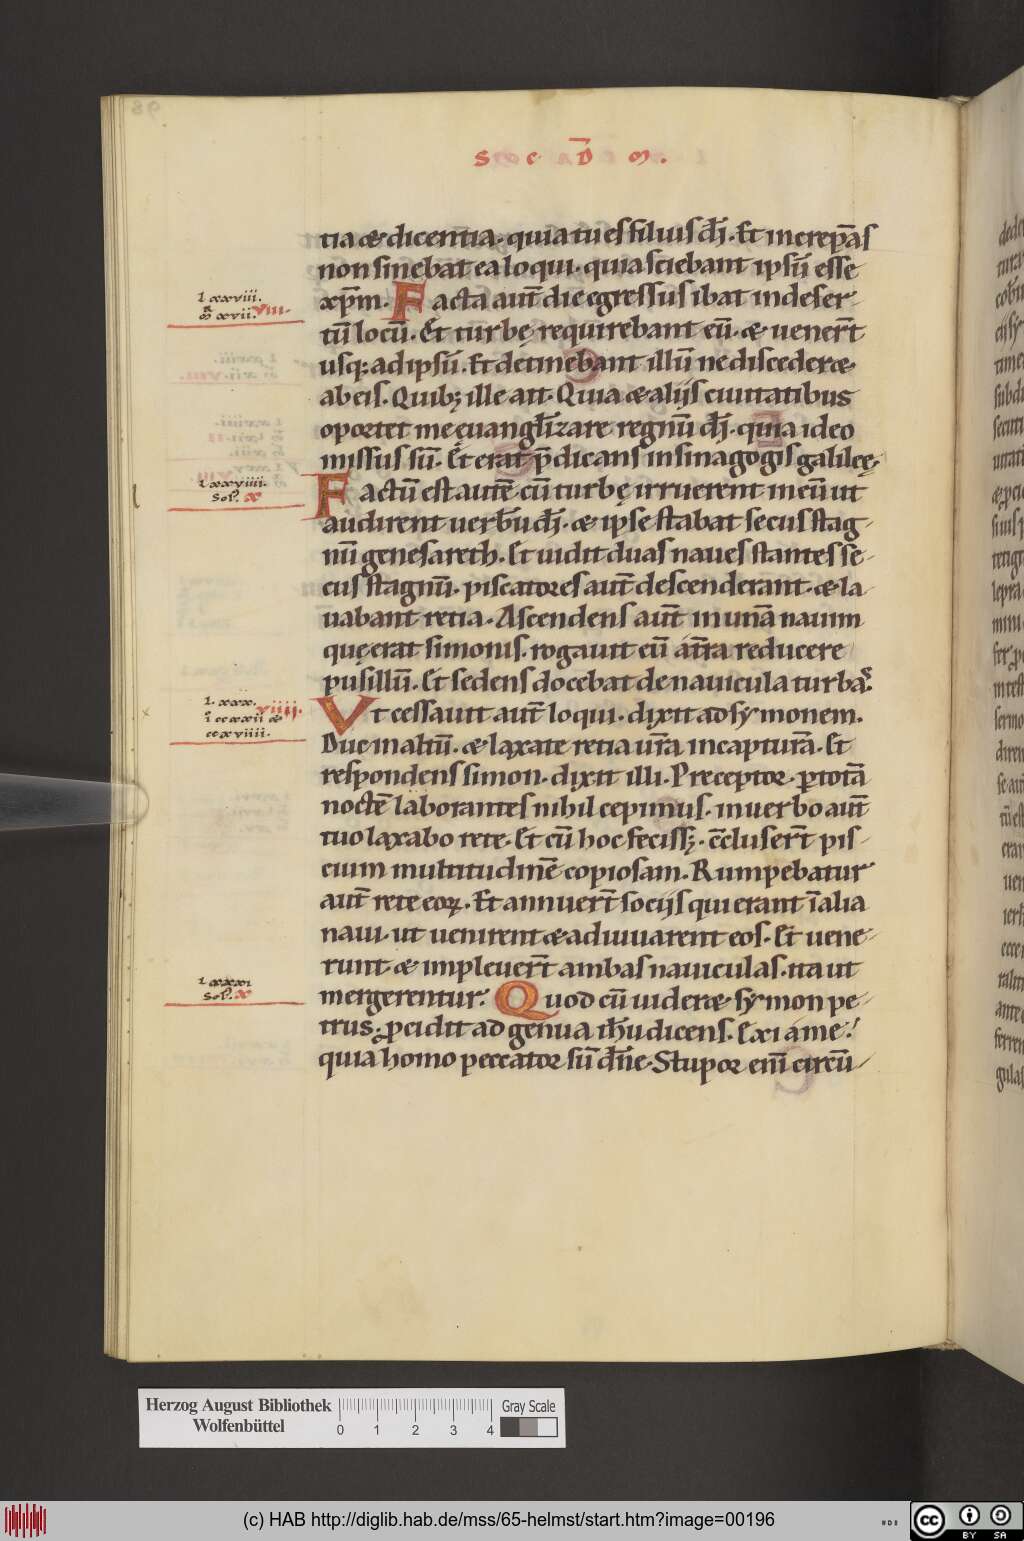 S E C A̅D M.
tia & dicentia. quia tu es filius dī. Et increpās
non sinebat ea loqui. quia sciebant ipsū esse
xp̄m. Facta aut̄ die egressus ibat in deser
tū locū. Et turbę requirebant eū. & uener̄t
usq; ad ipsū. Et detinebant illū ne disceder&
ab eis. Quib; ille ait. Quia & aliis ciuitatibus
oportet me euangl̄izare regnū dī. quia ideo
missus sū. Et erat p̄dicans in sinagogis galileę.
Factū est autē cū turbę irruerent in eū ut
audirent uerbū dī. & ipse stabat secus stag
nū genesareth. Et uidit duas naues stantes se
cus stagnū. piscatores aut̄ descenderant. & la
uabant retia. Ascendens aut̄ in unā nauim
quę erat simonis. rogauit eū a tr̄ra reducere
pusillū. Et sedens docebat de nauicula turbas.
Vt cessauit aut̄ loqui. dixit ad symonem.
Duc in altū. & laxate retia ur̄a in capturā. Et
respondens simon. dixit illi. Preceptor. p totā
noctē laborantes nihil cepimus. in uerbo aut̄
tuo laxabo rete. Et cū hoc feciss;. c̄cluser̄t pis
cium multitudinē copiosam. Rumpebatur
aut̄ rete eoꝝ. Et annuer̄t sociis qui erant ī alia
naui. ut uenirent & adiuuarent eos. Et uene
runt. & impleuer̄t ambas nauiculas. ita ut
mergerentur. Quod cū uider& symon pe
trus. pcidit ad genua ih̄u dicens. Exi a me!
quia homo peccator sū dn̄e. Stupor enī circū
l xxviii.
m xvii. VIII.
l xxviiii.
Sol. X
l. xxx. VIIII.
i ccxxii &
ccxviiii.
l xxxi
Sol. X
Herzog August Bibliothek
Wolfenbüttel
0 1 2 3 4
Gray Scale
(c) HAB http://diglib.hab.de/mss/65-helmst/start.htm?image=00196
cc BY SA